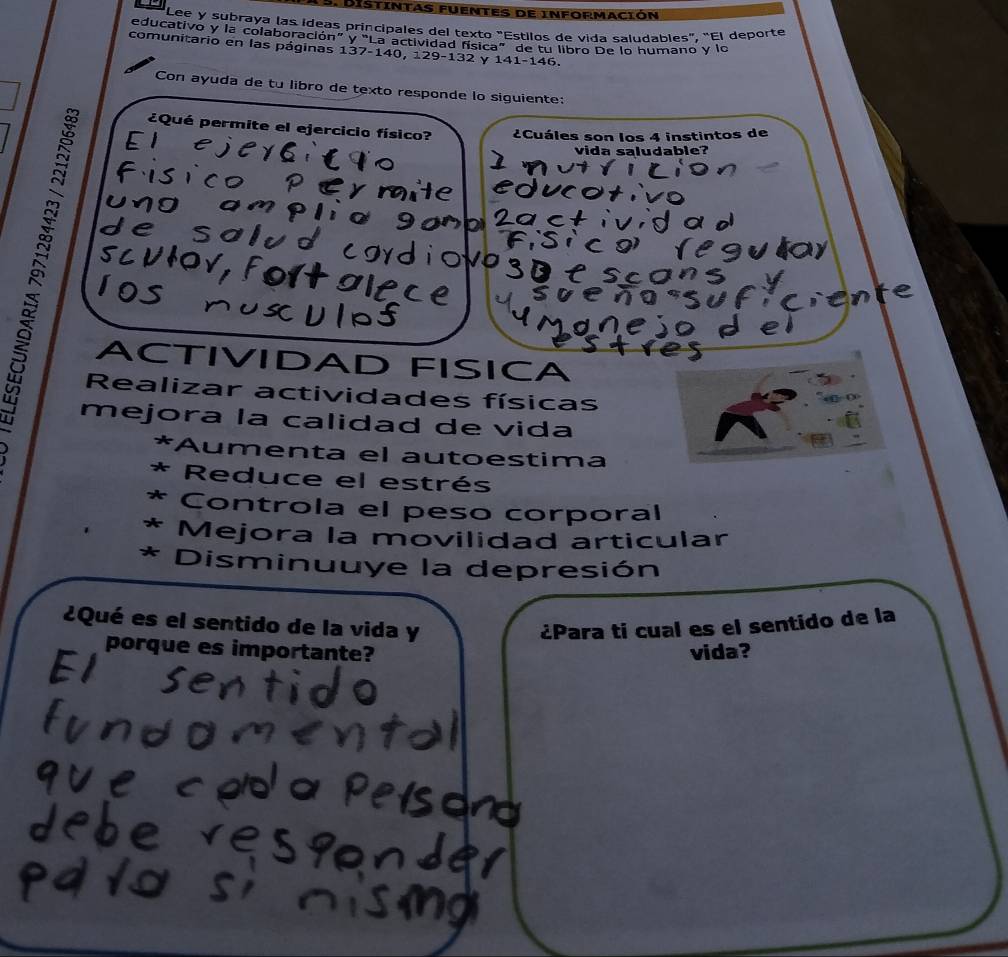 5. DISTINTAS FUENTES DE INFORMACIÓN
Lee y subraya las ideas principales del texto "Estilos de vida saludables", "El deporte
educativo y la colaboración" y "La actividad física" de tu libro De lo humano y lo
comunitario en las páginas 137-140, 129-132 y 141-146.
Con ayuda de tu libro de texto responde lo siguiente:
¿Qué permite el ejercicio físico?
El ejerciciо
fisico permite
una amplia gama
de salud cardiova
scular, Fortalece
los musculos
¿Cuáles son los 4 instintos de
vida saludable?
1 nutricion
educativo
2 actividad
Fisica regular
3 Descans y
sueño suficiente
4 y Manejo del
estres
ACTIVIDAD FISICA
Realizar actividades físicas
mejora la calidad de vida
*Aumenta el autoestima
* Reduce el estrés
* Controla el peso corporal
* Mejora la movilidad articular
* Disminuuye la depresión
¿Qué es el sentido de la vida y
porque es importante?
El sentido
fundamental
que cada persona
debe responder
para si misma
¿Para ti cual es el sentido de la
vida?
TELESECUNDARIA 7971284423 / 2212706483